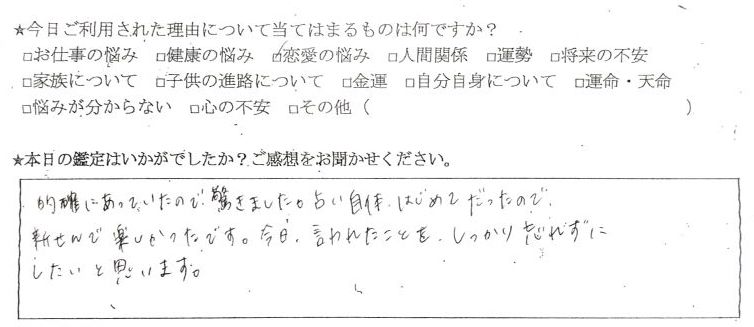 ★今日ご利用された理由について当てはまるものは何ですか？
□お仕事の悩み □健康の悩み ☑恋愛の悩み □人間関係 □運勢 □将来の不安
□家族について □子供の進路について □金運 □自分自身について □運命・天命
□悩みが分からない □心の不安 □その他（ ）
★本日の鑑定はいかがでしたか？ご感想をお聞かせください。
的確にあっていたので、驚きました。占い自体、はじめてだったので、
新せんで楽しかったです。今日、言われたことを、しっかり忘れずに
したいと思います。